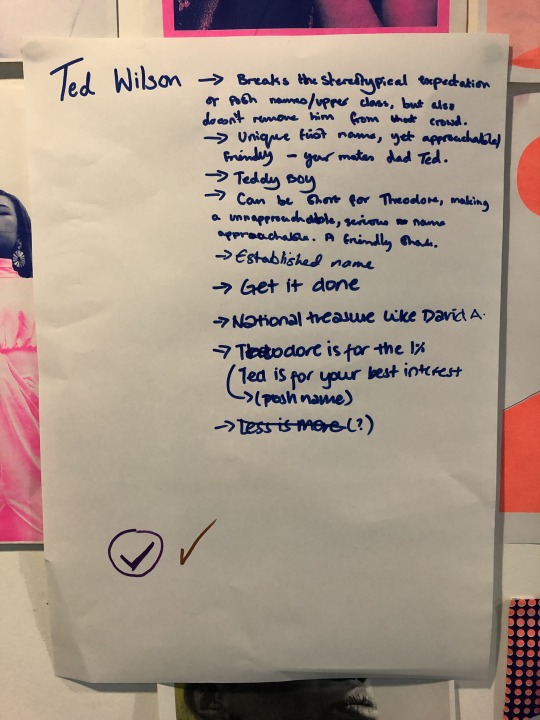 Ted Wilson → Breaks the stereotypical expectation
or posh names/upper class, but also
doesn't remove him from that crowd.
→ Unique first name, yet approachable/
friendly – your mates dad Ted.
→ Teddy Boy
→ Can be short for Theodore, making
a unnapproachable, serious name
approachable. A friendly
→ Established name
→ Get it done
→ National treasure like David A.
→ Theodore is for the 1%
(Ted is for your best interest
→ (posh name)
→ Less is more (?)